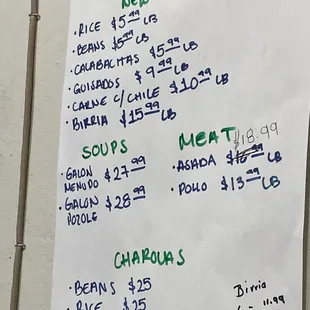 NEW
·RICE $5.99 LB
·BEANS $5.99 LB
·CALABACITAS $5.99 LB
·GUISADOS $9.99 LB
·CARNE C/CHILE $10.99 LB
·BIRRIA $15.99 LB
SOUPS
·GALON MENUDO $27.99
·GALON POZOLE $28.99
MEAT
$18.99
·ASADA $16.99 LB
·POLLO $13.99 LB
CHAROLAS
·BEANS $25
·RICE $25
Birria
11.99